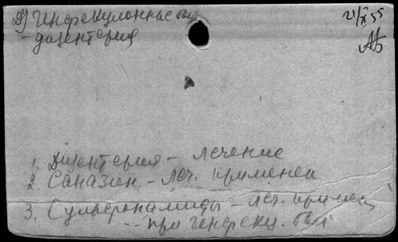 2) Инфекционные бол.
- дизентерия
21/X 55
АБ
1. Дизентерия - лечение
2. Саназин - леч. применен
3. Сульфонамиды - леч. примен
-- при инфекц. бол